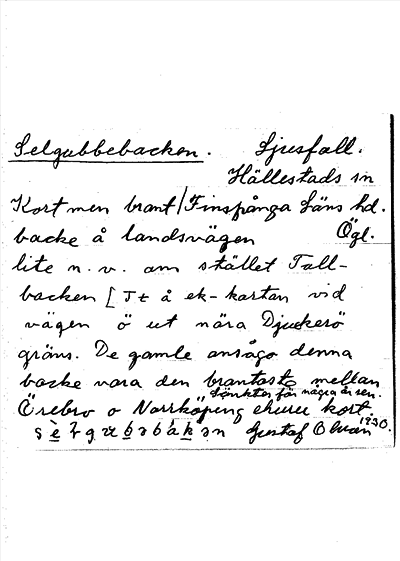 Selgubbebacken. Ljusfall.
Hällestads sn
Kort men brant / Finspånga läns hd.
backe å landsvägen Ögl.
lite n. v. om stället Tall-
backen [ T t å ek-kartan vid
vägen ö ut nära Djuckerö
gräns. De gamle ansågo denna
backe vara den brantaste mellan
Sänktes för några år sen.
Örebro o Norrköping ehuru kort
1930.
Gustaf Olman